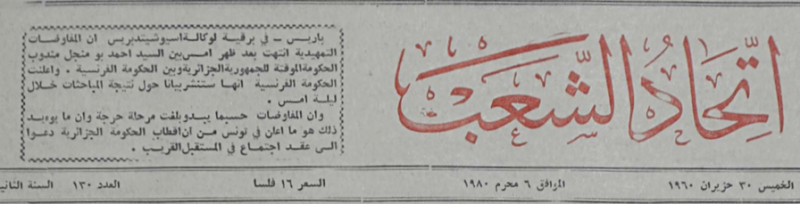 اتّحادُ الشّعب
باريس - في برقية لوكالة اسيوشيتدبريس ان المفاوضات
التمهيدية انتهت بعد ظهر امس بين السيد احمد بو منجل مندوب
الحكومة الموقتة للجمهورية الجزائرية وبين الحكومة الفرنسية . واعلنت
الحكومة الفرنسية انها ستنشر بيانا حول نتيجة المباحثات خلال
ليلة امس .
وان المفاوضات حسبما يبدو بلغت مرحلة حرجة وان ما يوءيد
ذلك هو ما اعلن في تونس من ان اقطاب الحكومة الجزائرية دعوا
الى عقد اجتماع في المستقبل القريب .
الخميس ٣٠ حزيران ١٩٦٠ الموافق ٦ محرم ١٩٨٠ السعر ١٦ فلسا العدد ١٣٠ السنة الثاني